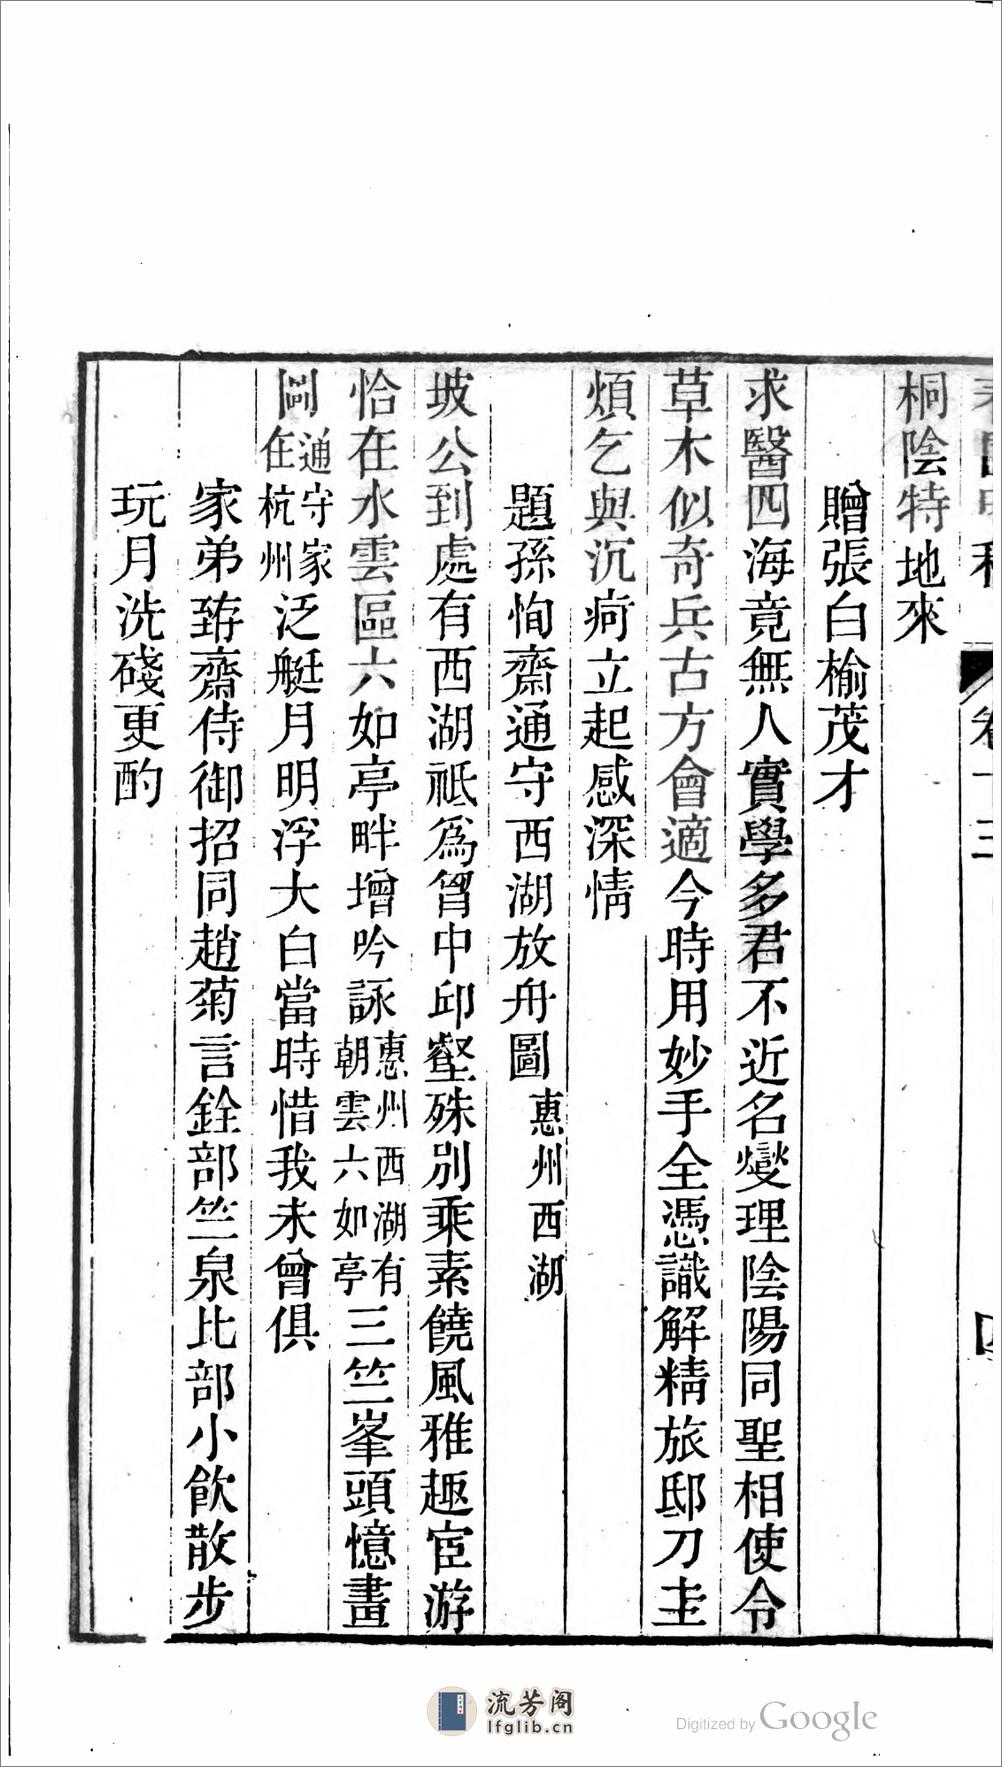 卷十三
桐陰特地來
贈張白榆茂才
求醫四海竟無人實學多君不近名燮理陰陽同聖相使令
草木似奇兵古方會適今時用妙手全憑識解精旅邸刀圭
煩乞與沉疴立起感深情
題孫恂齋通守西湖放舟圖惠州西湖
坡公到處有西湖祗為胷中邱壑殊別乘素饒風雅趣宦游
恰在水雲區六如亭畔增吟詠惠州西湖有朝雲六如亭三竺峯頭憶畫
圖通守家在杭州泛艇月明浮大白當時惜我未曾俱
家弟臶齋侍御招同趙菊言銓部竺泉比部小飲散步
玩月洗醆更酌
流芳阁
lfglib.cn
Digitized by Google